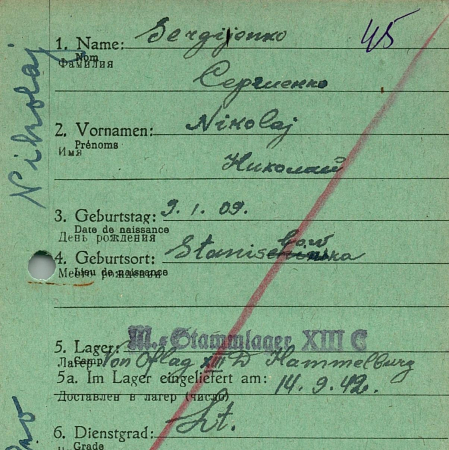 45
Nikolaj
1. Name: Sergijenko
Nom
Фамилия
Сергиенко
2. Vornamen: Nikolaj
Prénoms
Имя
Николай
3. Geburtstag: 9. 1. 09.
Date de naissance
День рождения
4. Geburtsort:
Lieu de naissance
Место рождения
5. Lager: M.-Stammlager XIII C
Camp
Лагерь Von Oflag XIII D Hammelburg
5a. Im Lager eingeliefert am: 14. 9. 42.
Доставлен в лагерь (число)
6. Dienstgrad: Lt.
Grade